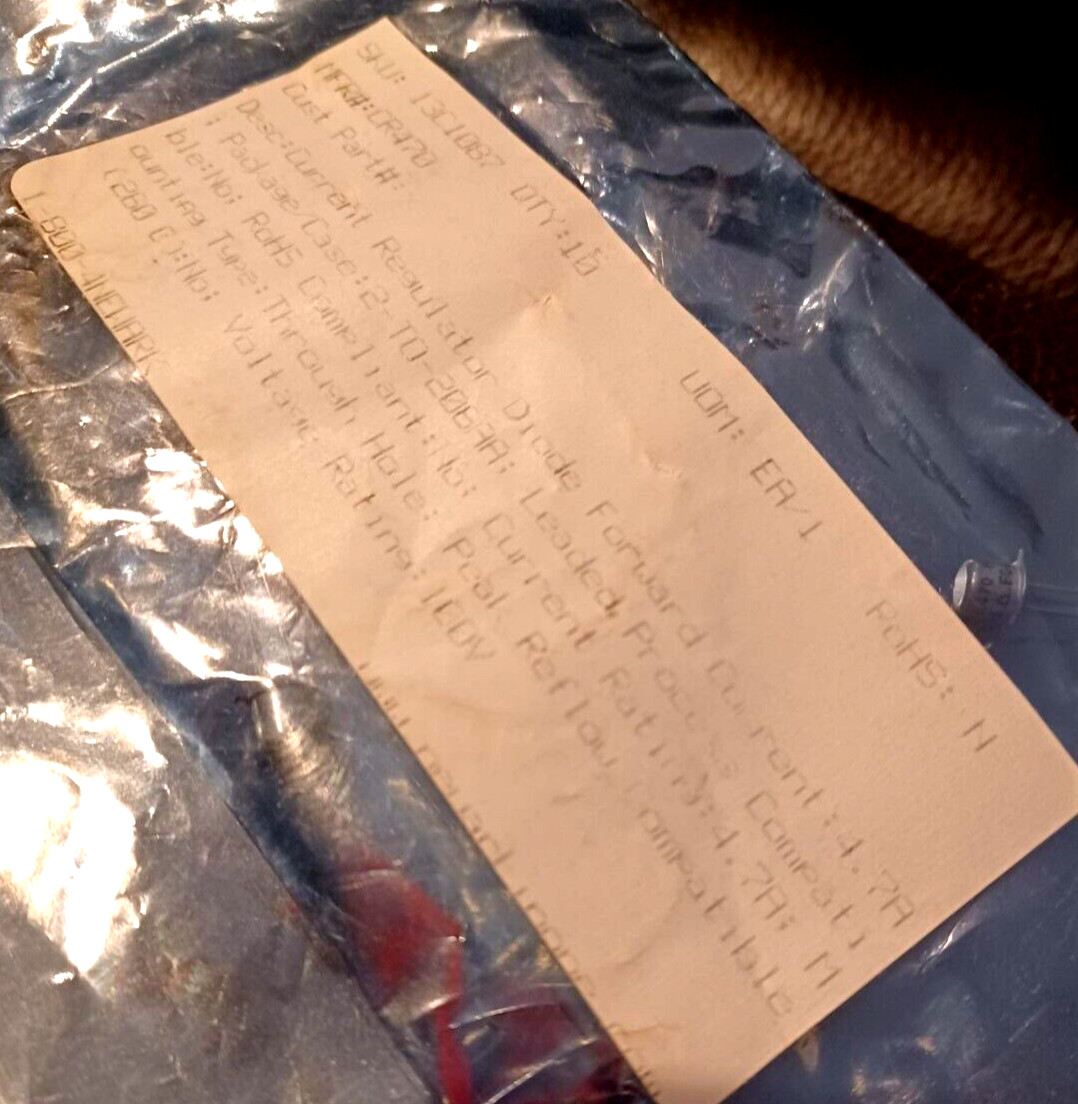 SKU: 13C1087 QTY:10 UOM: EA/1 RoHS: N
MFR#:CR470
Cust Part#:
Desc:Current Regulator Diode Forward Current:4.7A
; Package/Case:2-TO-206AA; Leaded Process Compati
ble:No; RoHS Compliant:No; Current Rating:4.7A; M
ounting Type:Through Hole; Peak Reflow Compatible
(260 C):No; Voltage Rating:
1-800-4NEWARK